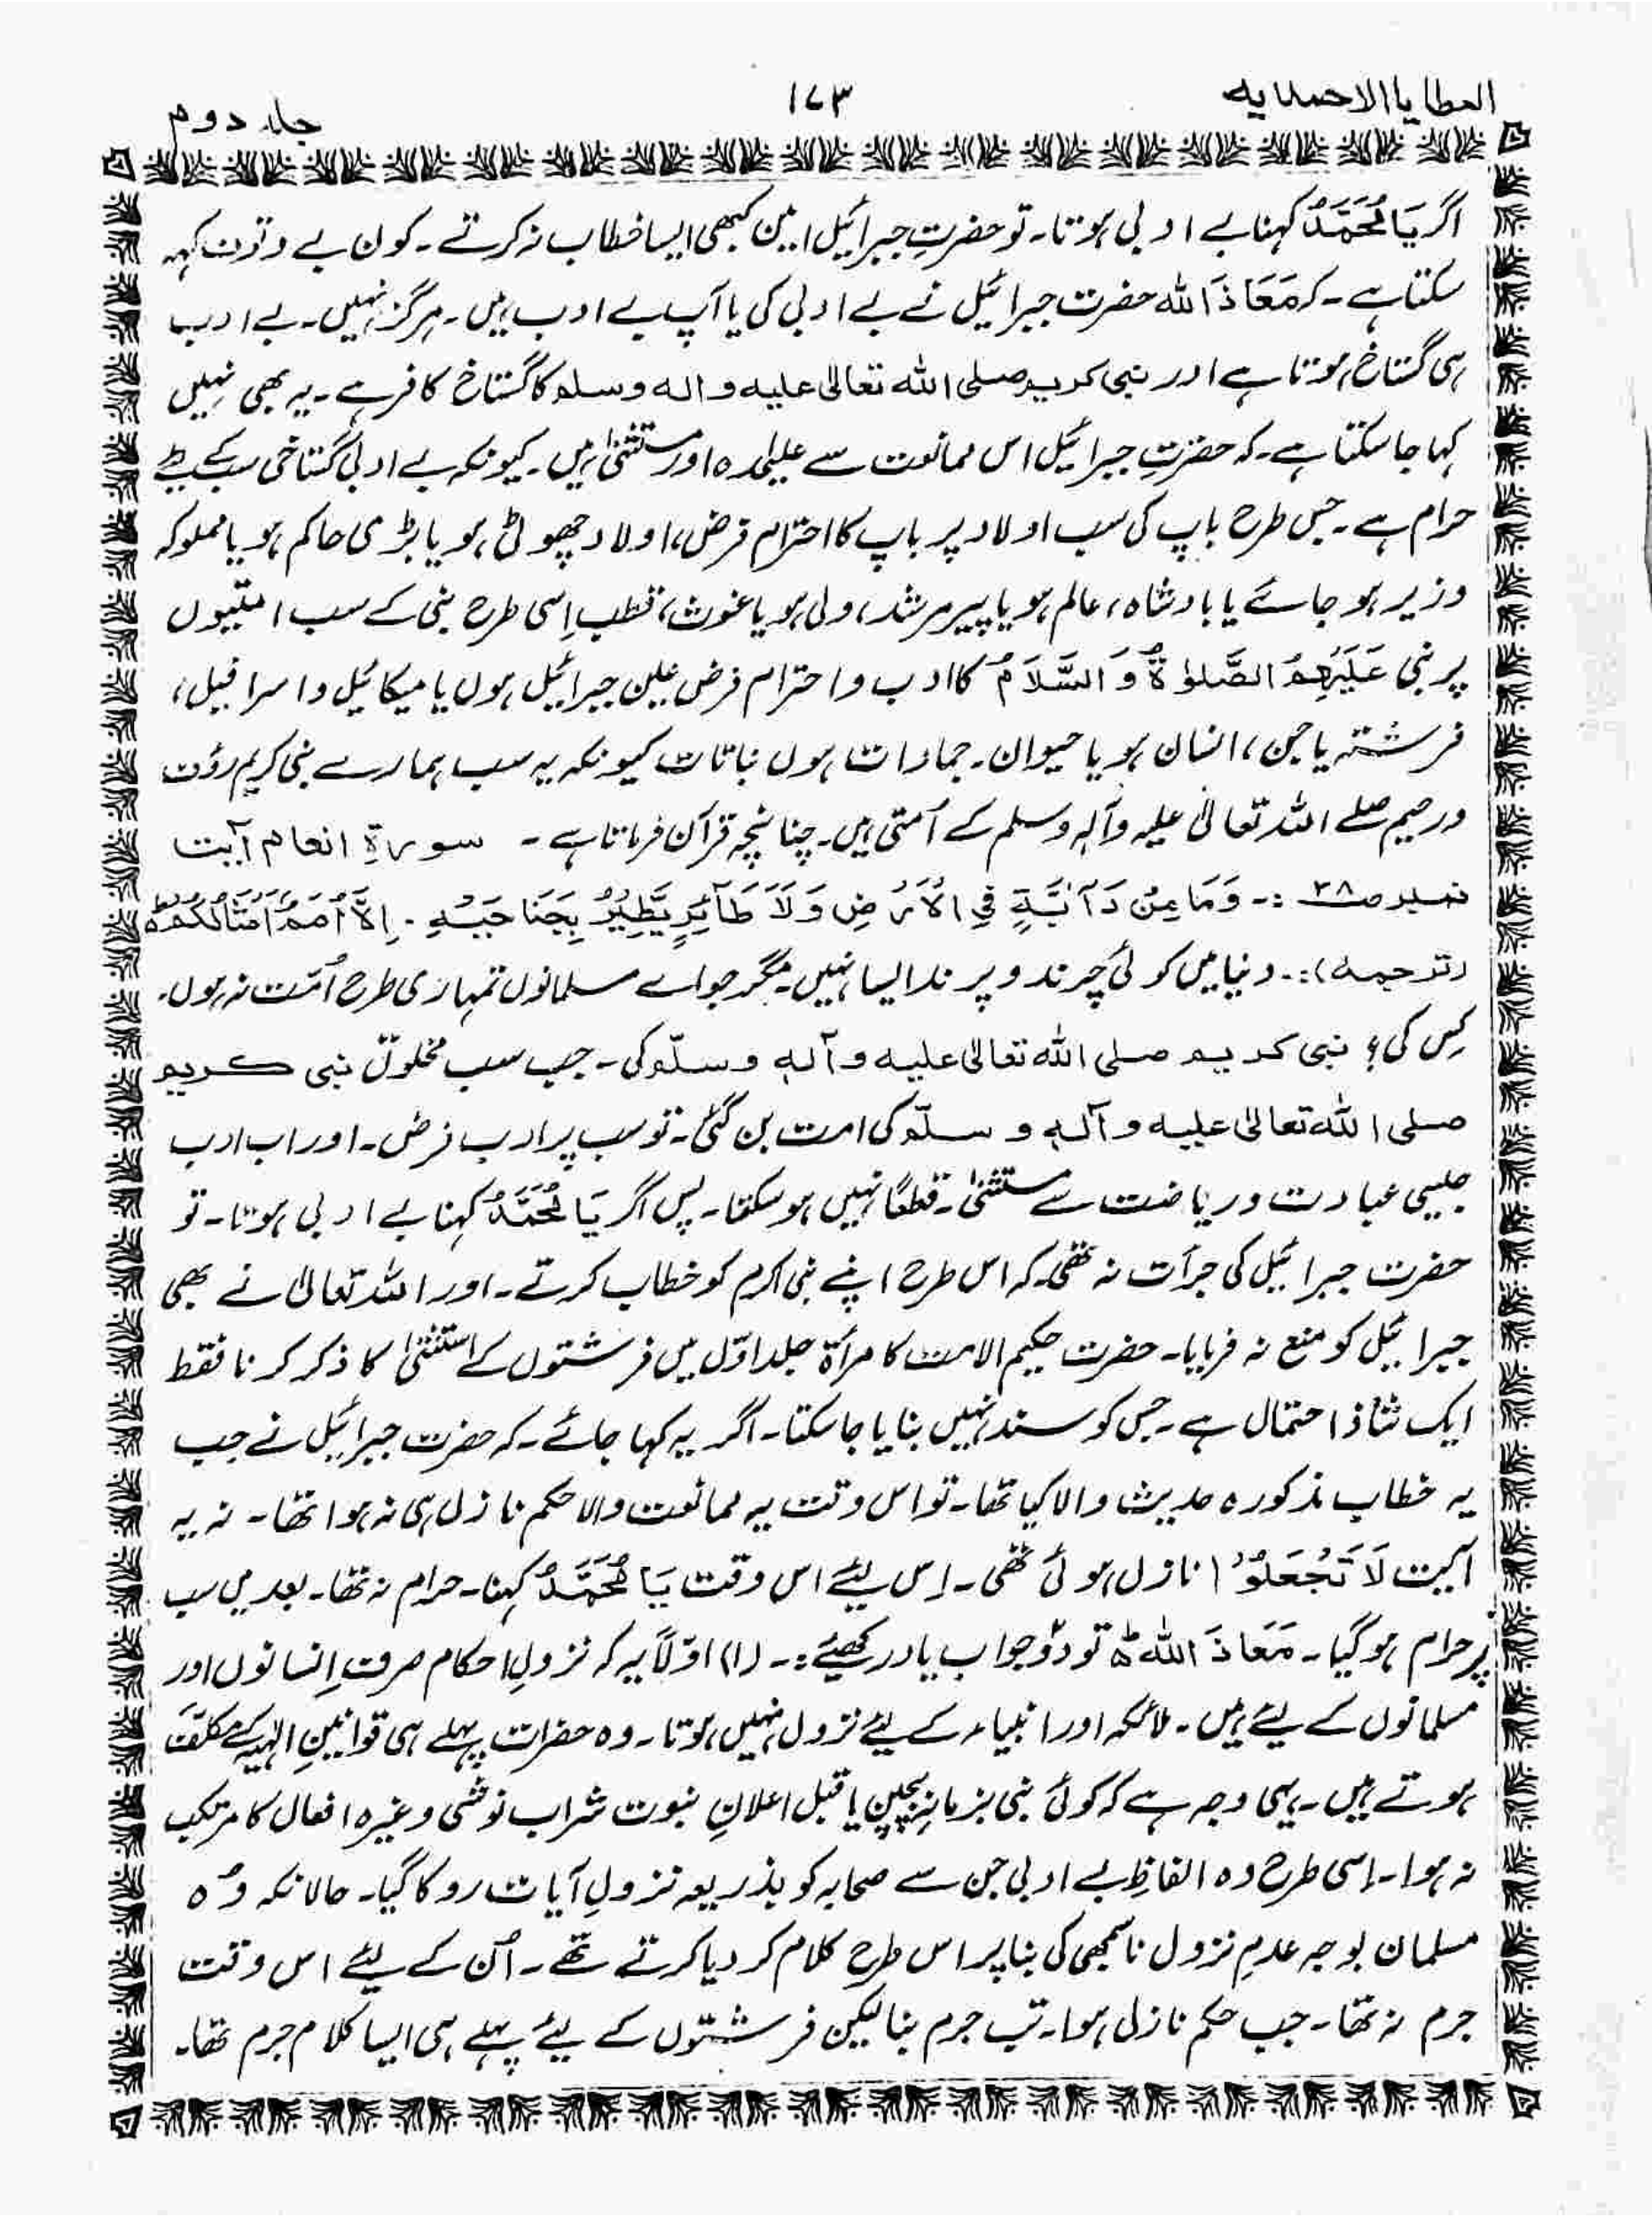 العطایا الاحمدیه
۱۷۳
جلد دوم
اگر یَا مُحَمَّدُ کہنا بے ادبی ہوتا۔ تو حضرتِ جبرائیل امین کبھی ایسا خطاب نہ کرتے۔ کون بے وقوف کہہ
سکتا ہے۔ کہ مَعَاذَ اللہ حضرت جبرائیل نے بے ادبی کی یا آپ بے ادب ہیں۔ ہرگز نہیں۔ بے ادب
ہی گستاخ ہوتا ہے اور نبی کریم صلی اللہ تعالیٰ علیہ و الہ وسلم کا گستاخ کافر ہے۔ یہ بھی نہیں
کہا جا سکتا ہے۔ کہ حضرتِ جبرائیل اس ممانعت سے علیحدہ اور مستثنیٰ ہیں۔ کیونکہ بے ادبی گستاخی سب کے لیے
حرام ہے۔ جس طرح باپ کی سب اولاد پر باپ کا احترام فرض، اولاد چھوٹی ہو یا بڑی حاکم ہو یا مملوکہ
وزیر ہو جائے یا بادشاہ، عالم ہو یا پیر مرشد، ولی ہو یا غوث، قطب اِسی طرح نبی کے سب امتیوں
پر نبی عَلَیْہِمُ الصَّلوٰۃُ وَ السَّلَامُ کا ادب و احترام فرض عین جبرائیل ہوں یا میکائیل و اسرافیل،
فرشتہ یا جن، انسان ہو یا حیوان۔ جمادات ہوں نباتات کیونکہ یہ سب ہمارے نبی کریم رؤف
و رحیم صلے اللہ تعالیٰ علیہ وآلہٖ وسلم کے اُمتی ہیں۔ چنانچہ قرآن فرماتا ہے۔ سورۃ انعام آیت
نمبر ۳۸ :۔ وَمَا مِنْ دَآبَّةٍ فِی الْاَرْضِ وَلَا طَآئِرٍ یَّطِیْرُ بِجَنَاحَیْہِ۔ اِلَّا اُمَمٌ اَمْثَالُکُمْ ط
(ترجمہ):۔ دنیا میں کوئی چرند و پرند ایسا نہیں۔ مگر جو اے مسلمانوں تمہاری طرح اُمت نہ ہوں۔
کِس کی؟ نبی کریم صلی اللہ تعالیٰ علیہ وآلہٖ وسلّم کی۔ جب سب مخلوق نبی کریم
صلی اللہ تعالیٰ علیہ وآلہٖ و سلّم کی امت بن گئی۔ تو سب پر ادب فرض۔ اور اب ادب
جیسی عبادت و ریاضت سے مستثنیٰ۔ قطعًا نہیں ہو سکتا۔ پس اگر یَا مُحَمَّدُ کہنا بے ادبی ہوتا۔ تو
حضرت جبرائیل کی جرأت نہ تھی۔ کہ اس طرح اپنے نبی اکرم کو خطاب کرتے۔ اور اللہ تعالیٰ نے بھی
جبرائیل کو منع نہ فرمایا۔ حضرت حکیم الامت کا مرأۃ جلد اوّل میں فرشتوں کے استثنیٰ کا ذکر کرنا فقط
ایک شاذ احتمال ہے۔ جس کو سند نہیں بنایا جا سکتا۔ اگر یہ کہا جائے۔ کہ حضرت جبرائیل نے جب
یہ خطاب مذکورہ حدیث والا کیا تھا۔ تو اس وقت یہ ممانعت والا حکم نازل ہی نہ ہوا تھا۔ نہ یہ
آیت لَا تَجْعَلُوْا نازل ہوئی تھی۔ اِس لیئے اس وقت یَا مُحَمَّدُ کہنا۔ حرام نہ تھا۔ بعد میں سب
پر حرام ہو گیا۔ مَعَاذَ اللہ ط تو دو جواب یاد رکھیئے:۔ (۱) اوّلاً یہ کہ نزولِ احکام صرف اِنسانوں اور
مسلمانوں کے لیئے ہیں۔ ملائکہ اور انبیاء کے لیئے نزول نہیں ہوتا۔ وہ حضرات پہلے ہی قوانینِ الٰہیہ کے مکلّف
ہوتے ہیں۔ یہی وجہ ہے کہ کوئی نبی بزمانہِ بچپن یا قبل اعلانِ نبوت شراب نوشی وغیرہ افعال کا مرتکب
نہ ہوا۔ اِسی طرح وہ الفاظِ بے ادبی جن سے صحابہ کو بذریعہ نزولِ آیات روکا گیا۔ حالانکہ وُہ
مسلمان بوجہ عدمِ نزول ناسمجھی کی بنا پر اس طرح کلام کر دیا کرتے تھے۔ اُن کے لیئے اس وقت
جرم نہ تھا۔ جب حکم نازل ہوا۔ تب جرم بنا لیکن فرشتوں کے لیئے پہلے ہی ایسا کلام جرم تھا۔